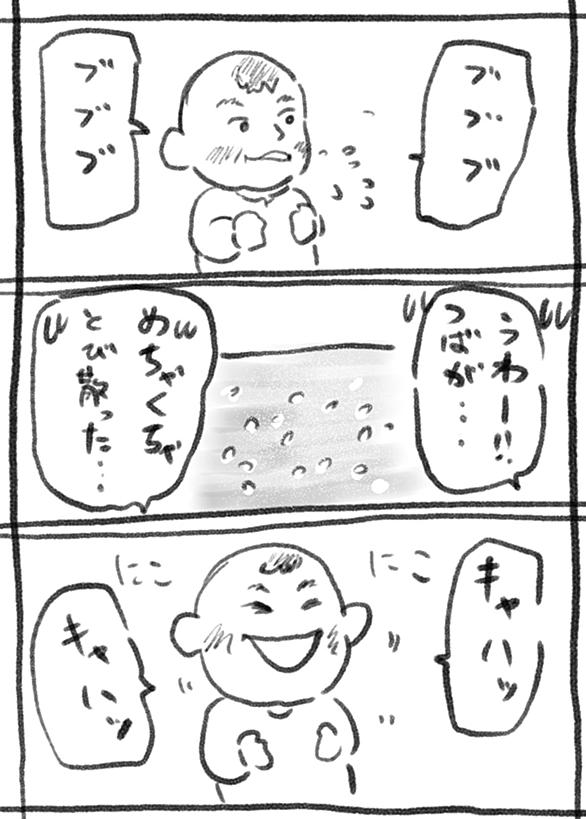 ブブブ
ブブブ
うわー!!
つばが…
めちゃくちゃ
とび散った…
キャハッ
にこ
にこ
キャハッ